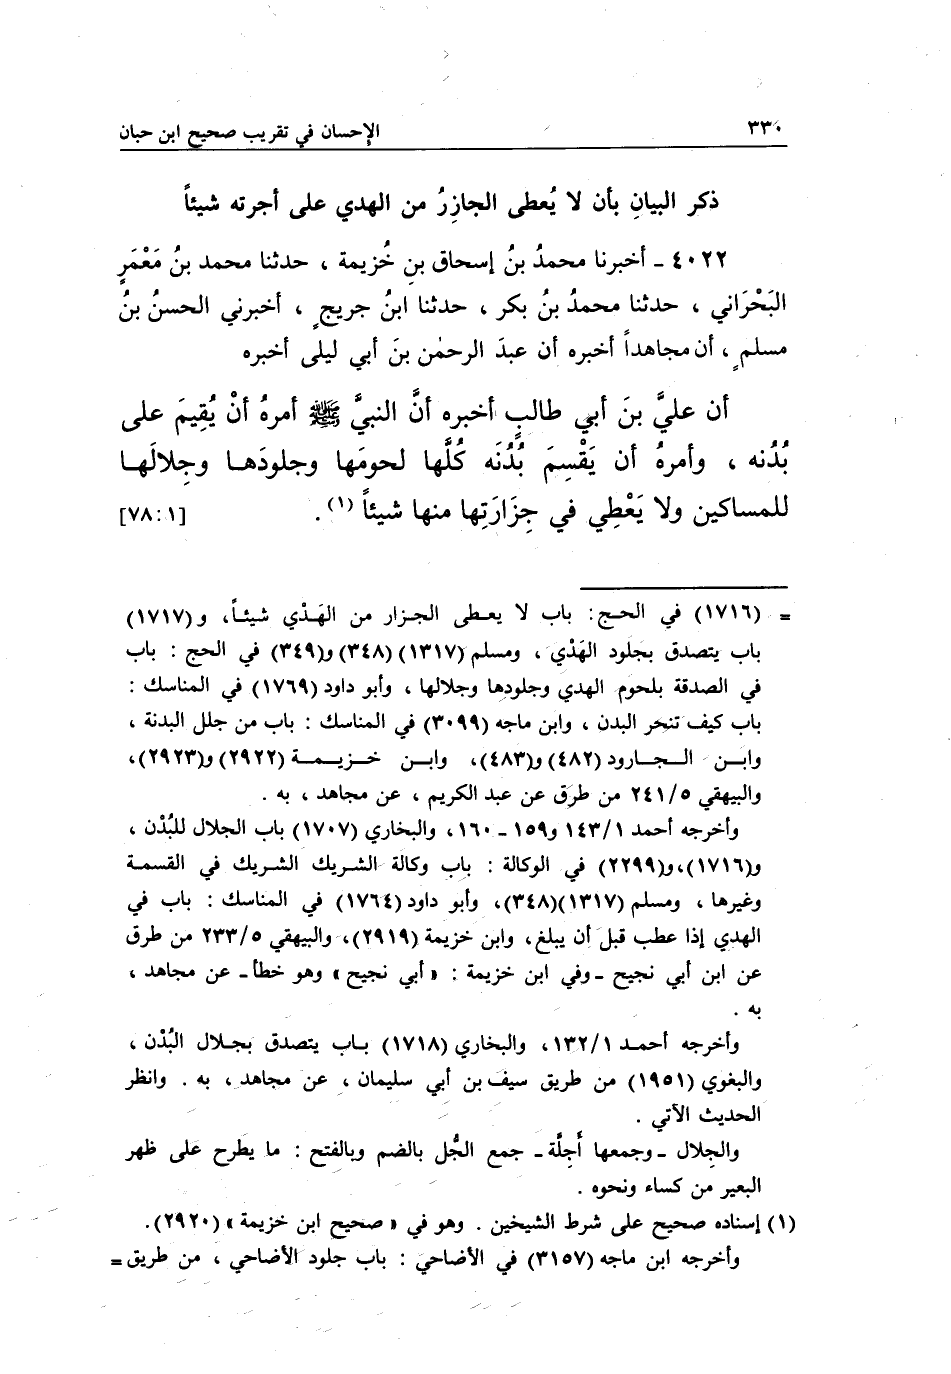 ٣٣٠
الإحسان في تقريب صحيح ابن حبان
ذكر البيانِ بأن لا يُعطى الجازِرُ من الهدي على أجرته شيئاً
٤٠٢٢ ـ أخبرنا محمدُ بنُ إسحاق بنِ خُزيمة ، حدثنا محمد بنُ مَعْمَرٍ
البَحْرَاني ، حدثنا محمدُ بنُ بكر ، حدثنا ابنُ جريجٍ ، أخبرني الحسنُ بنُ
مسلمٍ ، أن مجاهداً أخبره أن عبدَ الرحمٰن بنَ أبي ليلى أخبره
أن عليَّ بنَ أبي طالبٍ أخبره أنَّ النبيَّ ﷺ أمرهُ أنْ يُقِيمَ على
بُدْنه ، وأمرهُ أن يَقْسِمَ بُدْنَه كُلَّها لحومَها وجلودَها وجِلالَها
للمساكين ولا يَعْطِي في جِزَارَتِها منها شيئاً (١) .
[٧٨:١]
= (١٧١٦) في الحج: باب لا يعطى الجزار من الهَدْي شيئاً، و(١٧١٧)
باب يتصدق بجلود الهَدْي ، ومسلم (١٣١٧) (٣٤٨) و(٣٤٩) في الحج : باب
في الصدقة بلحوم الهدي وجلودها وجلالها ، وأبو داود (١٧٦٩) في المناسك :
باب كيف تنحر البدن ، وابن ماجه (٣٠٩٩) في المناسك : باب من جلل البدنة ،
وابن الجارود (٤٨٢) و(٤٨٣)، وابن خزيمة (٢٩٢٢) و(٢٩٢٣)،
والبيهقي ٢٤١/٥ من طرق عن عبد الكريم ، عن مجاهد ، به .
وأخرجه أحمد ١٤٣/١ و١٥٩ ـ ١٦٠، والبخاري (١٧٠٧) باب الجلال للبُدْن ،
و(١٧١٦)،و(٢٢٩٩) في الوكالة : باب وكالة الشريك الشريك في القسمة
وغيرها ، ومسلم (١٣١٧)(٣٤٨)، وأبو داود (١٧٦٤) في المناسك : باب في
الهدي إذا عطب قبل أن يبلغ، وابن خزيمة (٢٩١٩)، والبيهقي ٢٣٣/٥ من طرق
عن ابن أبي نجيح ـ وفي ابن خزيمة : « أبي نجيح » وهو خطأ ـ عن مجاهد ،
به .
وأخرجه أحمد ١٣٢/١، والبخاري (١٧١٨) باب يتصدق بجلال البُدْن ،
والبغوي (١٩٥١) من طريق سيف بن أبي سليمان ، عن مجاهد ، به . وانظر
الحديث الآتي .
والجِلال ـ وجمعها أَجِلَّة ـ جمع الجُل بالضم وبالفتح : ما يطرح على ظهر
البعير من كساء ونحوه .
(١) إسناده صحيح على شرط الشيخين . وهو في « صحيح ابن خزيمة » (٢٩٢٠).
وأخرجه ابن ماجه (٣١٥٧) في الأضاحي : باب جلود الأضاحي ، من طريق =